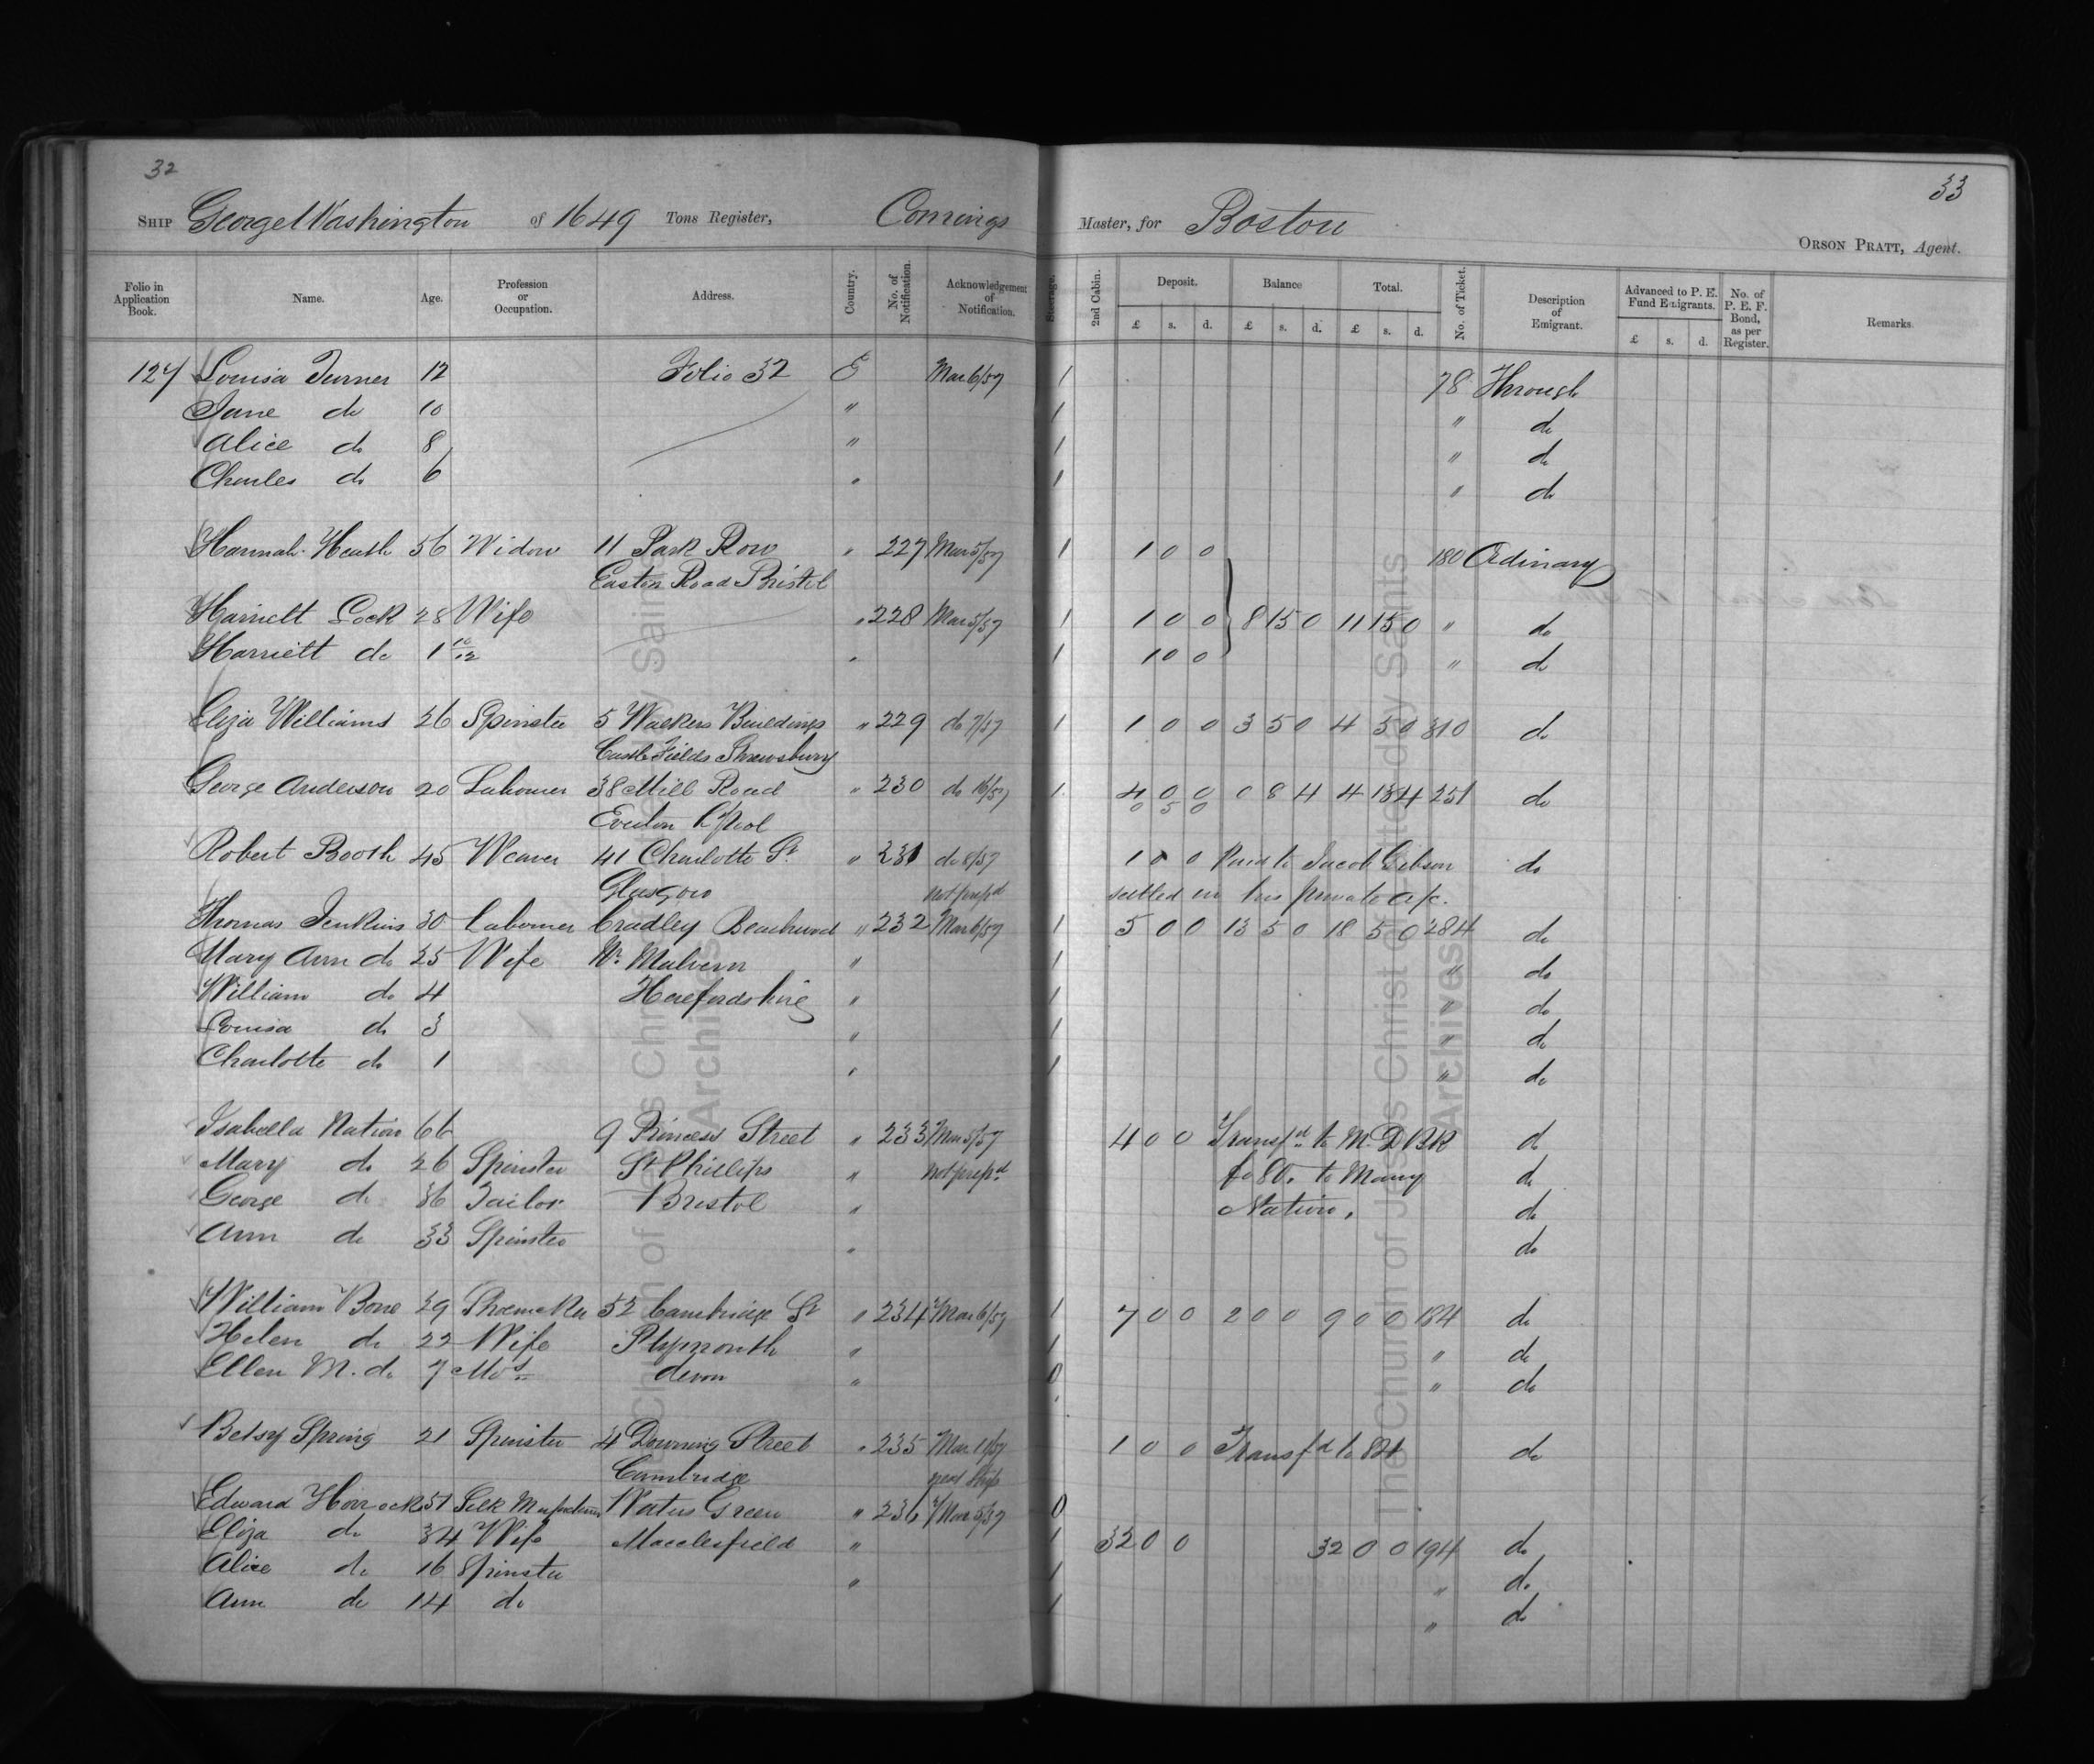 32
33
SHIP George Washington of 1649 Tons Register, Comings Master, for Boston
ORSON PRATT, Agent.
Folio in Application Book. Name. Age. Profession or Occupation. Address. Country. No. of Notification. Acknowledgement of Notification. Steerage. 2nd Cabin. Deposit. £ s. d. Balance £ s. d. Total. £ s. d. No. of Ticket. Description of Emigrant. Advanced to P. E. Fund Emigrants. £ s. d. No. of P. E. F. Bond, as per Register. Remarks.
127 Louisa Turner 12 Folio 32 E Mar 6/57 1 78 Through
Jane do 10 " 1 " do
Alice do 8 " 1 " do
Charles do 6 " 1 " do
Hannah Heath 56 Widow 11 Park Row " 227 Mar 5/57 1 1 0 0 180 Ordinary
Easton Road Bristol
Harriett Lock 28 Wife " 228 Mar 5/57 1 1 0 0 8 15 0 11 15 0 " do
Harriett do 1 10/12 " 1 1 0 0 " do
Eliza Williams 26 Spinster 5 Walkers Buildings " 229 do 7/57 1 1 0 0 3 5 0 4 5 0 310 do
Castle Fields Shrewsbury
George Anderson 20 Labourer 38 Mill Road " 230 do 16/57 1 4 0 0 0 8 4 4 13 4 251 do
Everton L'pool 0 5 0
Robert Booth 45 Weaver 41 Charlotte St " 231 do 8/57 1 0 0 Paid to Jacob Gibson do
Glasgow not prepd settled in his private a/c.
Thomas Jenkins 30 Labourer Cradley " 232 Mar 6/57 1 5 0 0 13 5 0 18 5 0 284 do
Mary Ann do 25 Wife Nr Malvern " 1 " do
William do 4 Herefordshire " 1 " do
Louisa do 3 " 1 " do
Charlotte do 1 " 1 " do
Isabella Nation 66 9 Princess Street " 233 Mar 5/57 4 0 0 Transfd to M. D BK do
Mary do 26 Spinster St Phillips " not prepd fo 80. to Mary do
George do 36 Tailor Bristol " Nation. do
Ann do 33 Spinster " do
William Bone 29 Shoemaker 52 Cambridge St " 234 Mar 6/57 1 7 0 0 2 0 0 9 0 0 184 do
Helen do 22 Wife Plymouth " 1 " do
Ellen M. do 7 Mos devon " 0 " do
Betsy Spring 21 Spinster 4 Downing Street " 235 Mar 11/57 1 0 0 Transfd to 824 do
Cambridge next Ship
Edward Horrocks 51 Silk Waters Green " 236 Mar 5/57 0
Eliza do 34 Wife Macclesfield " 1 32 0 0 32 0 0 194 do
Alice do 16 Spinster " 1 " do
Ann do 14 do 1 " do
The Church of Jesus Christ of Latter-day Saints
Archives